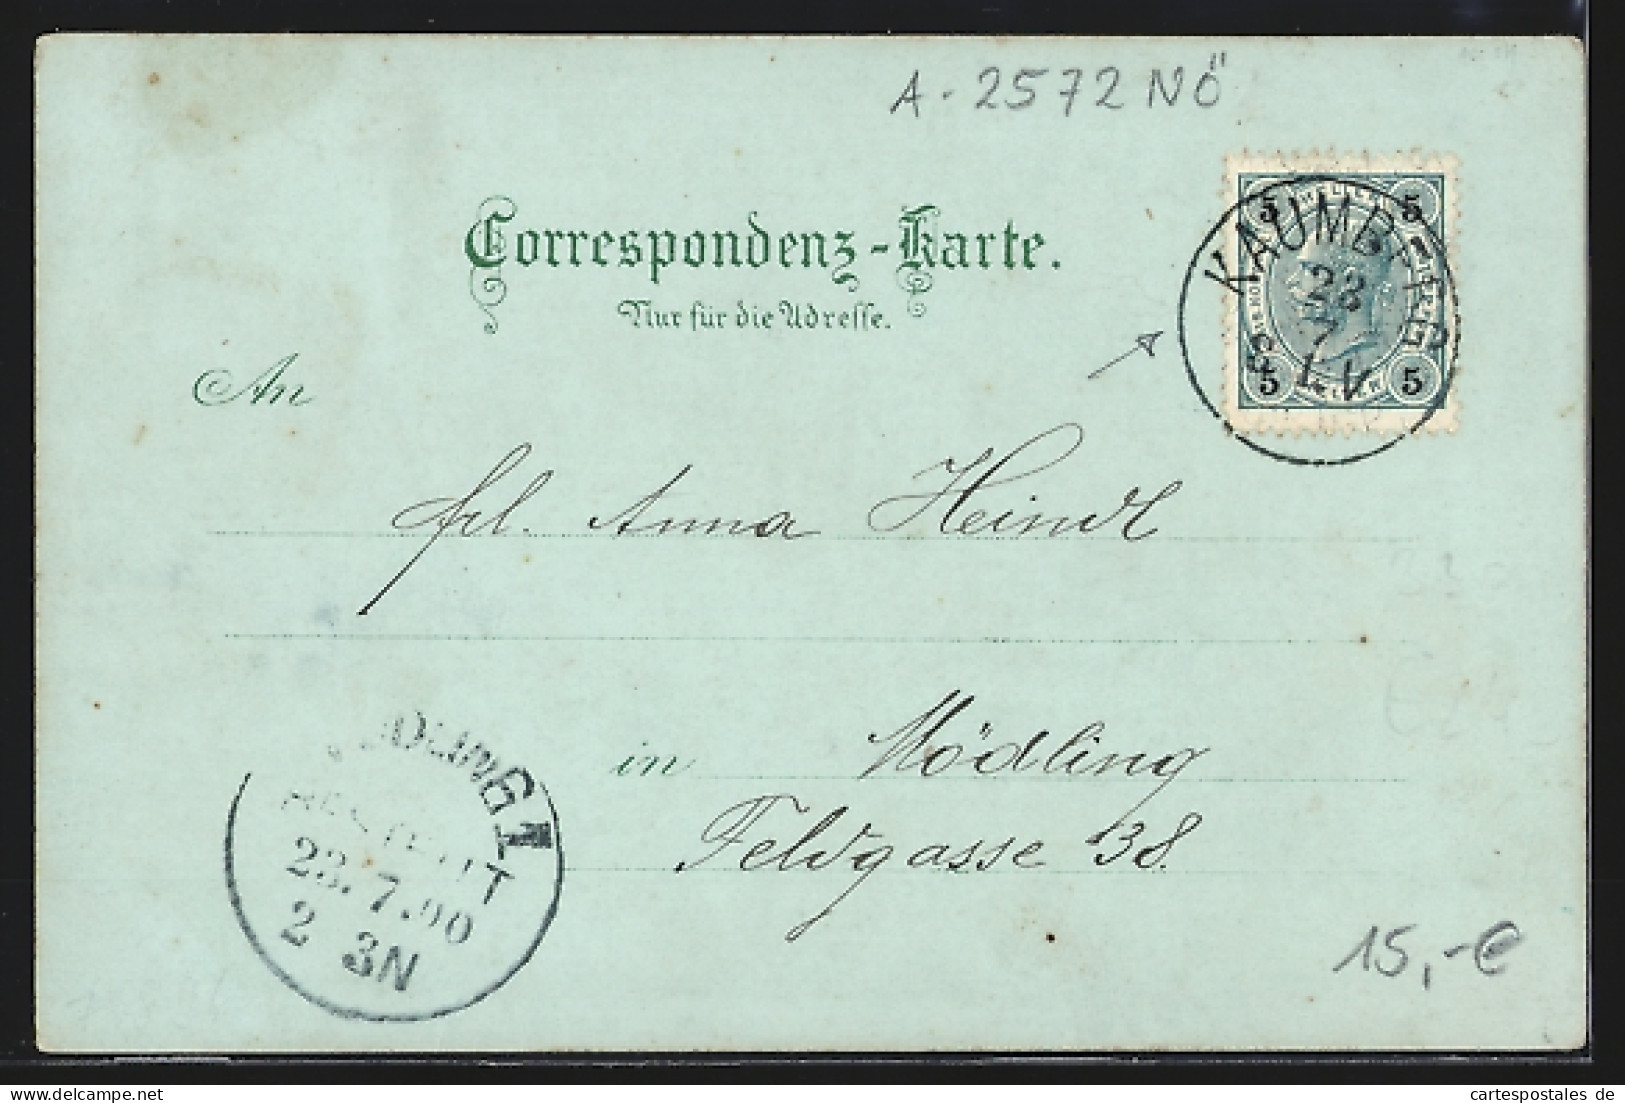 A-2572 NÖ
Correspondenz-Karte.
Nur für die Adresse.
An
KAUMBERG
5 5
23
7
5 5
frl. Anna Heindl
in Mödling
Feldgasse 38.
MÖDLING 1
BESTELLT
23.7.00
2 3N
15,-€
cartespostales de